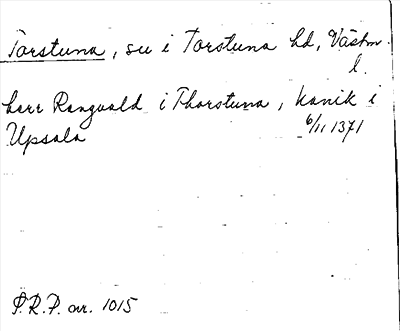 Torstuna, su i Torstuna hd, Västm.
l.
herr Rangvald i Thorstuna, kanik i
Upsala 6/11 1371
P.R.P. nr. 1015